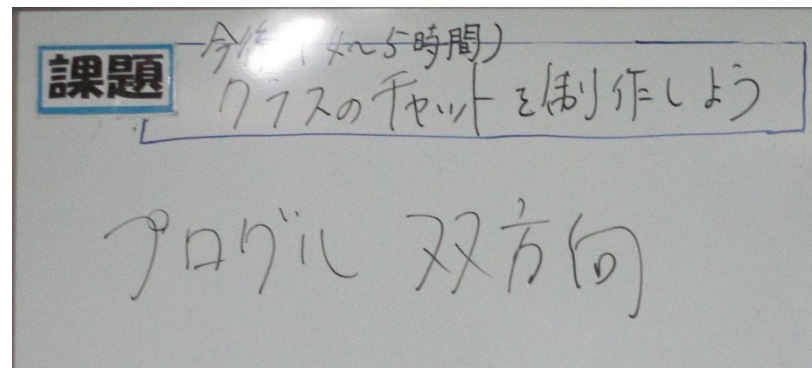 今後（4〜5時間）
課題 クラスのチャットを制作しよう
プログル 双方向